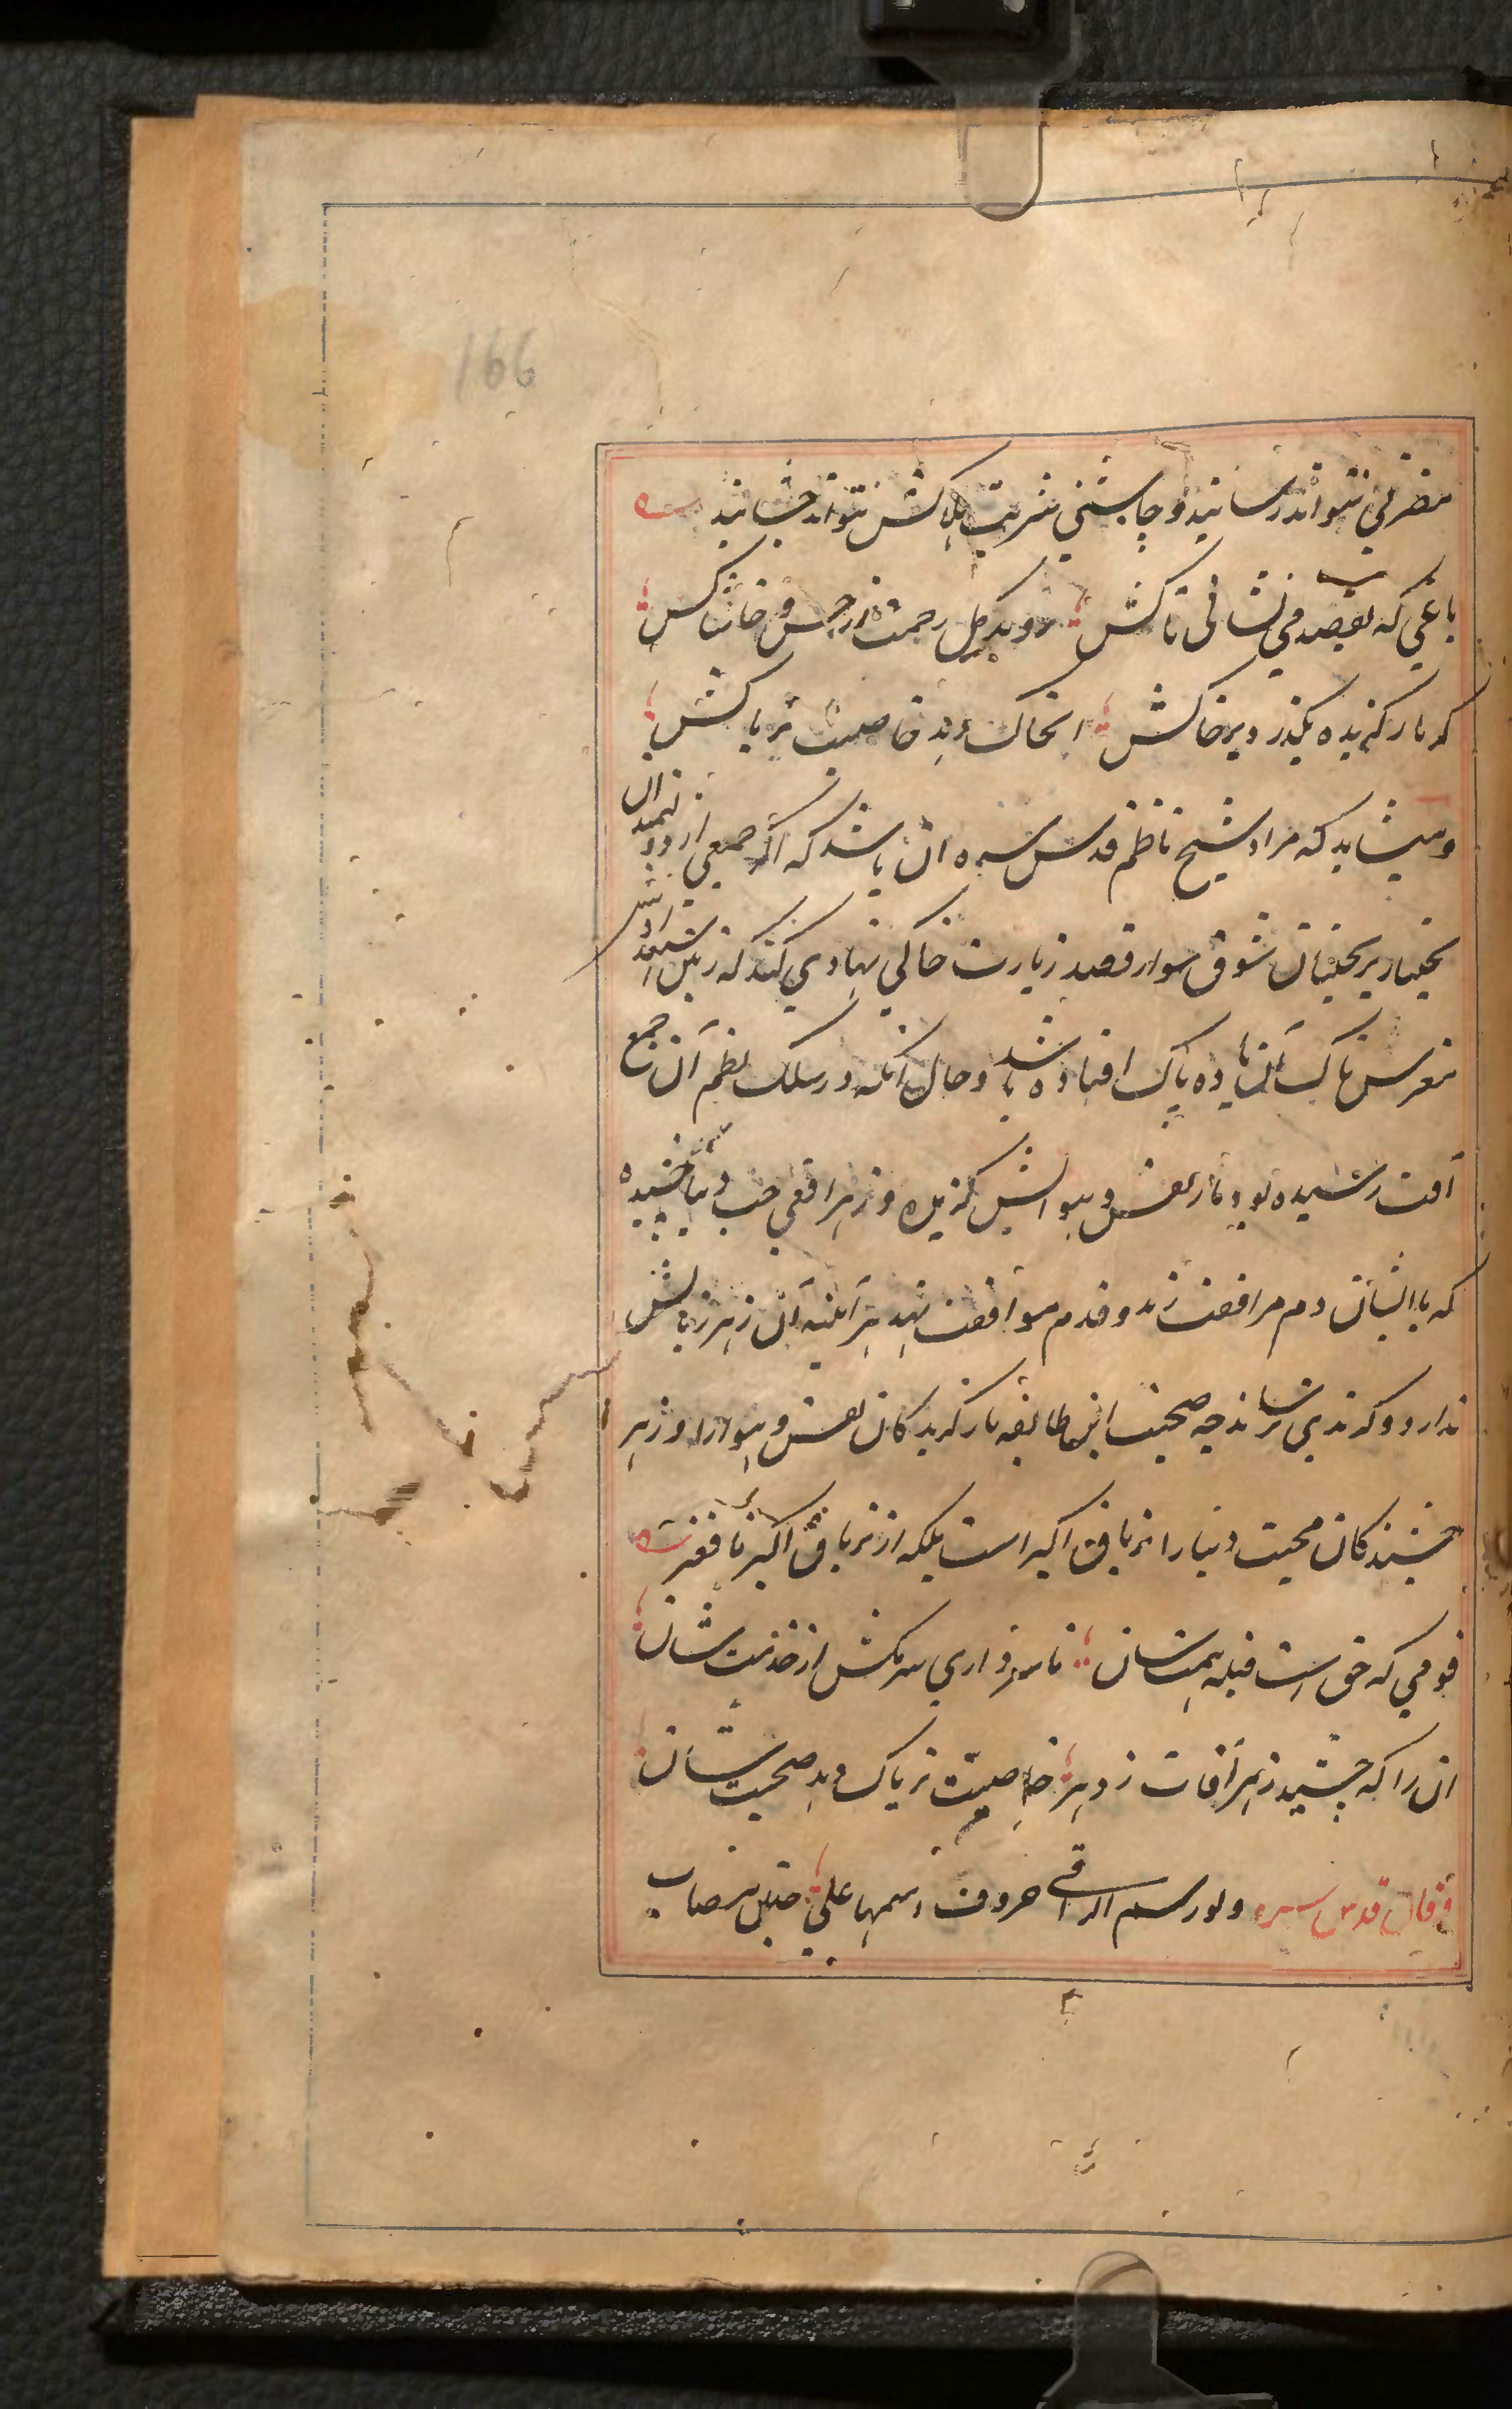 166
مضرتی نتواند رسانید و چاشنی شربت هلاکش نتواند چشانید
باغی که بقصد می نشانی تاکش روید گل رحمت از خس و خاشاکش
گر مار گزیده بگذرد بر خاکش آن خاک دهد خاصیت تریاکش
و میشاید که مراد شیخ ناظم قدس سره آن باشد که اگر جمعی از دردمندان
بختیار بر بختیان شوق سوار قصد زیارت خاکی نهادی کنند که زمین استعدادش
مغرس تاک آن باده پاک افتاده باشد و حال آنکه در سلک نظم آن جمع
آفت رسیده بود مار نفس و هوایش گزیده و زهر افعی حب دنیا چشیده
که با ایشان دم مرافقت زند و قدم موافقت نهد هر آینه آن زهر زیانش
ندارد و گزندی نرساند چه صحبت این طایفه مار گزیدگان نفس و هوا را و زهر
چشیدگان محبت دنیا را تریاق اکبر است بلکه از تریاق اکبر نافعتر
قومی که حق است قبله همتشان تا سر داری سر مکش از خدمتشان
آن را که چشید زهر آفات ز دهر خاصیت تریاک دهد صحبتشان
قال قدس سره ولو رسم الراقی حروف اسمها علی جبین مصاب